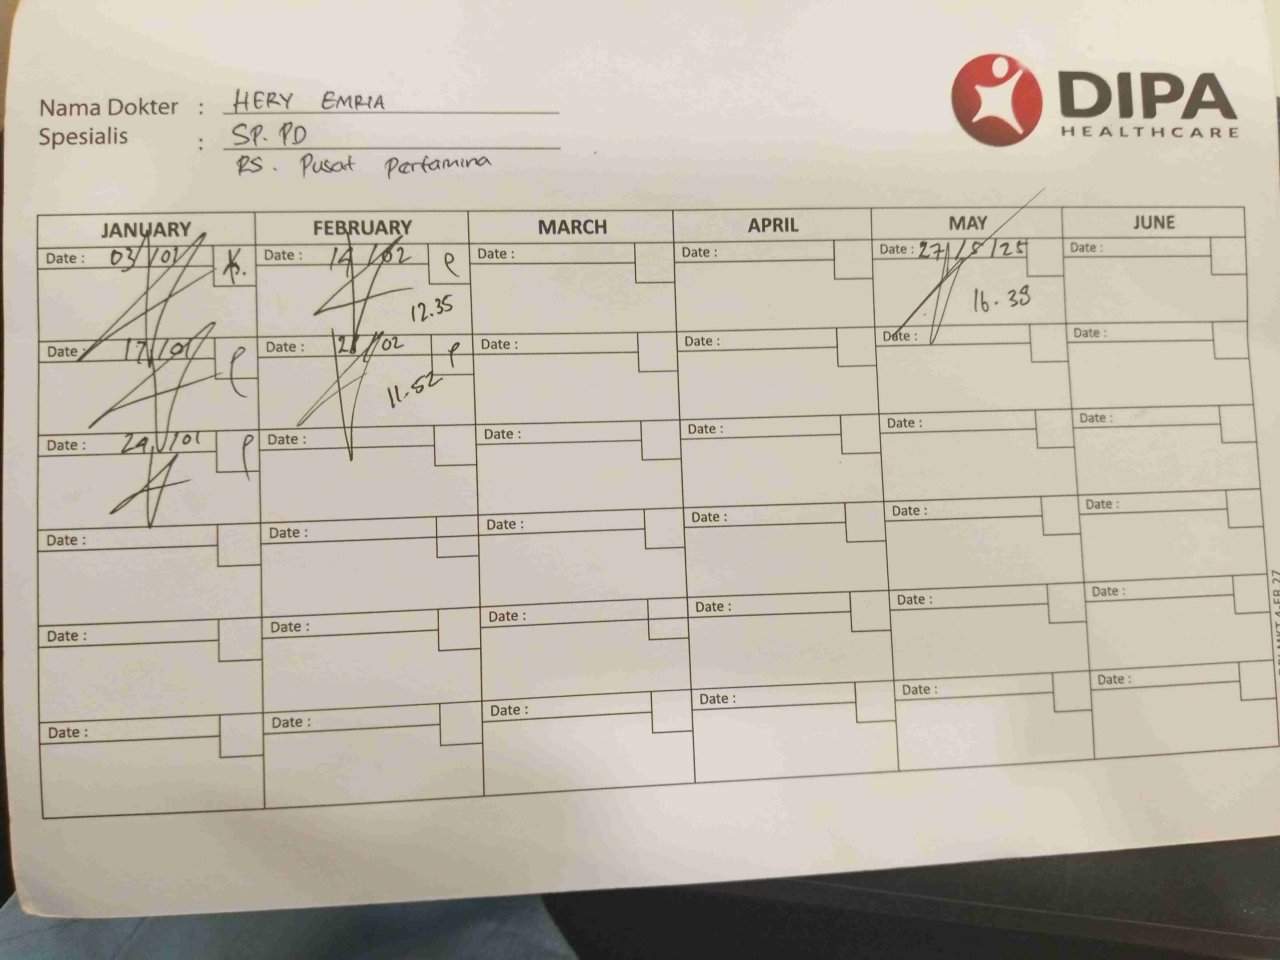 DIPA
HEALTHCARE
Nama Dokter : HERY EMRIA
Spesialis : SP. PD
RS. Pusat Pertamina
JANUARY FEBRUARY MARCH APRIL MAY JUNE
Date : 03/01 Date : 14/02 P Date : Date : Date : 27/5/25 Date :
12.35 16.38
Date : 17/01 P Date : 28/02 P Date : Date : Date : Date :
11.52
Date : 24/01 P Date : Date : Date : Date : Date :
Date : Date : Date : Date : Date : Date :
Date : Date : Date : Date : Date : Date :
Date : Date : Date : Date : Date : Date :